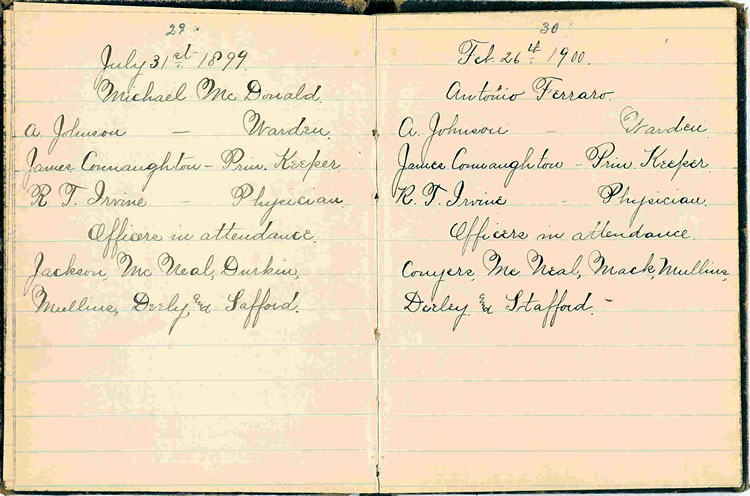 29
July 31st 1899.
Michael Mc Donald.
A. Johnson — Warden.
James Connaughton - Prin. Keeper
R. T. Irvine — Physician.
Officers in attendance.
Jackson, Mc Neal, Durkin,
Mullins, Deely, and Safford.
30
Feb. 26th 1900.
Antonio Ferraro.
A. Johnson - Warden
James Connaughton - Prin Keeper.
R. T. Irvine - Physician.
Officers in attendance.
Conyers, Mc Neal, Mack, Mullins,
Deeley, and Stafford. -